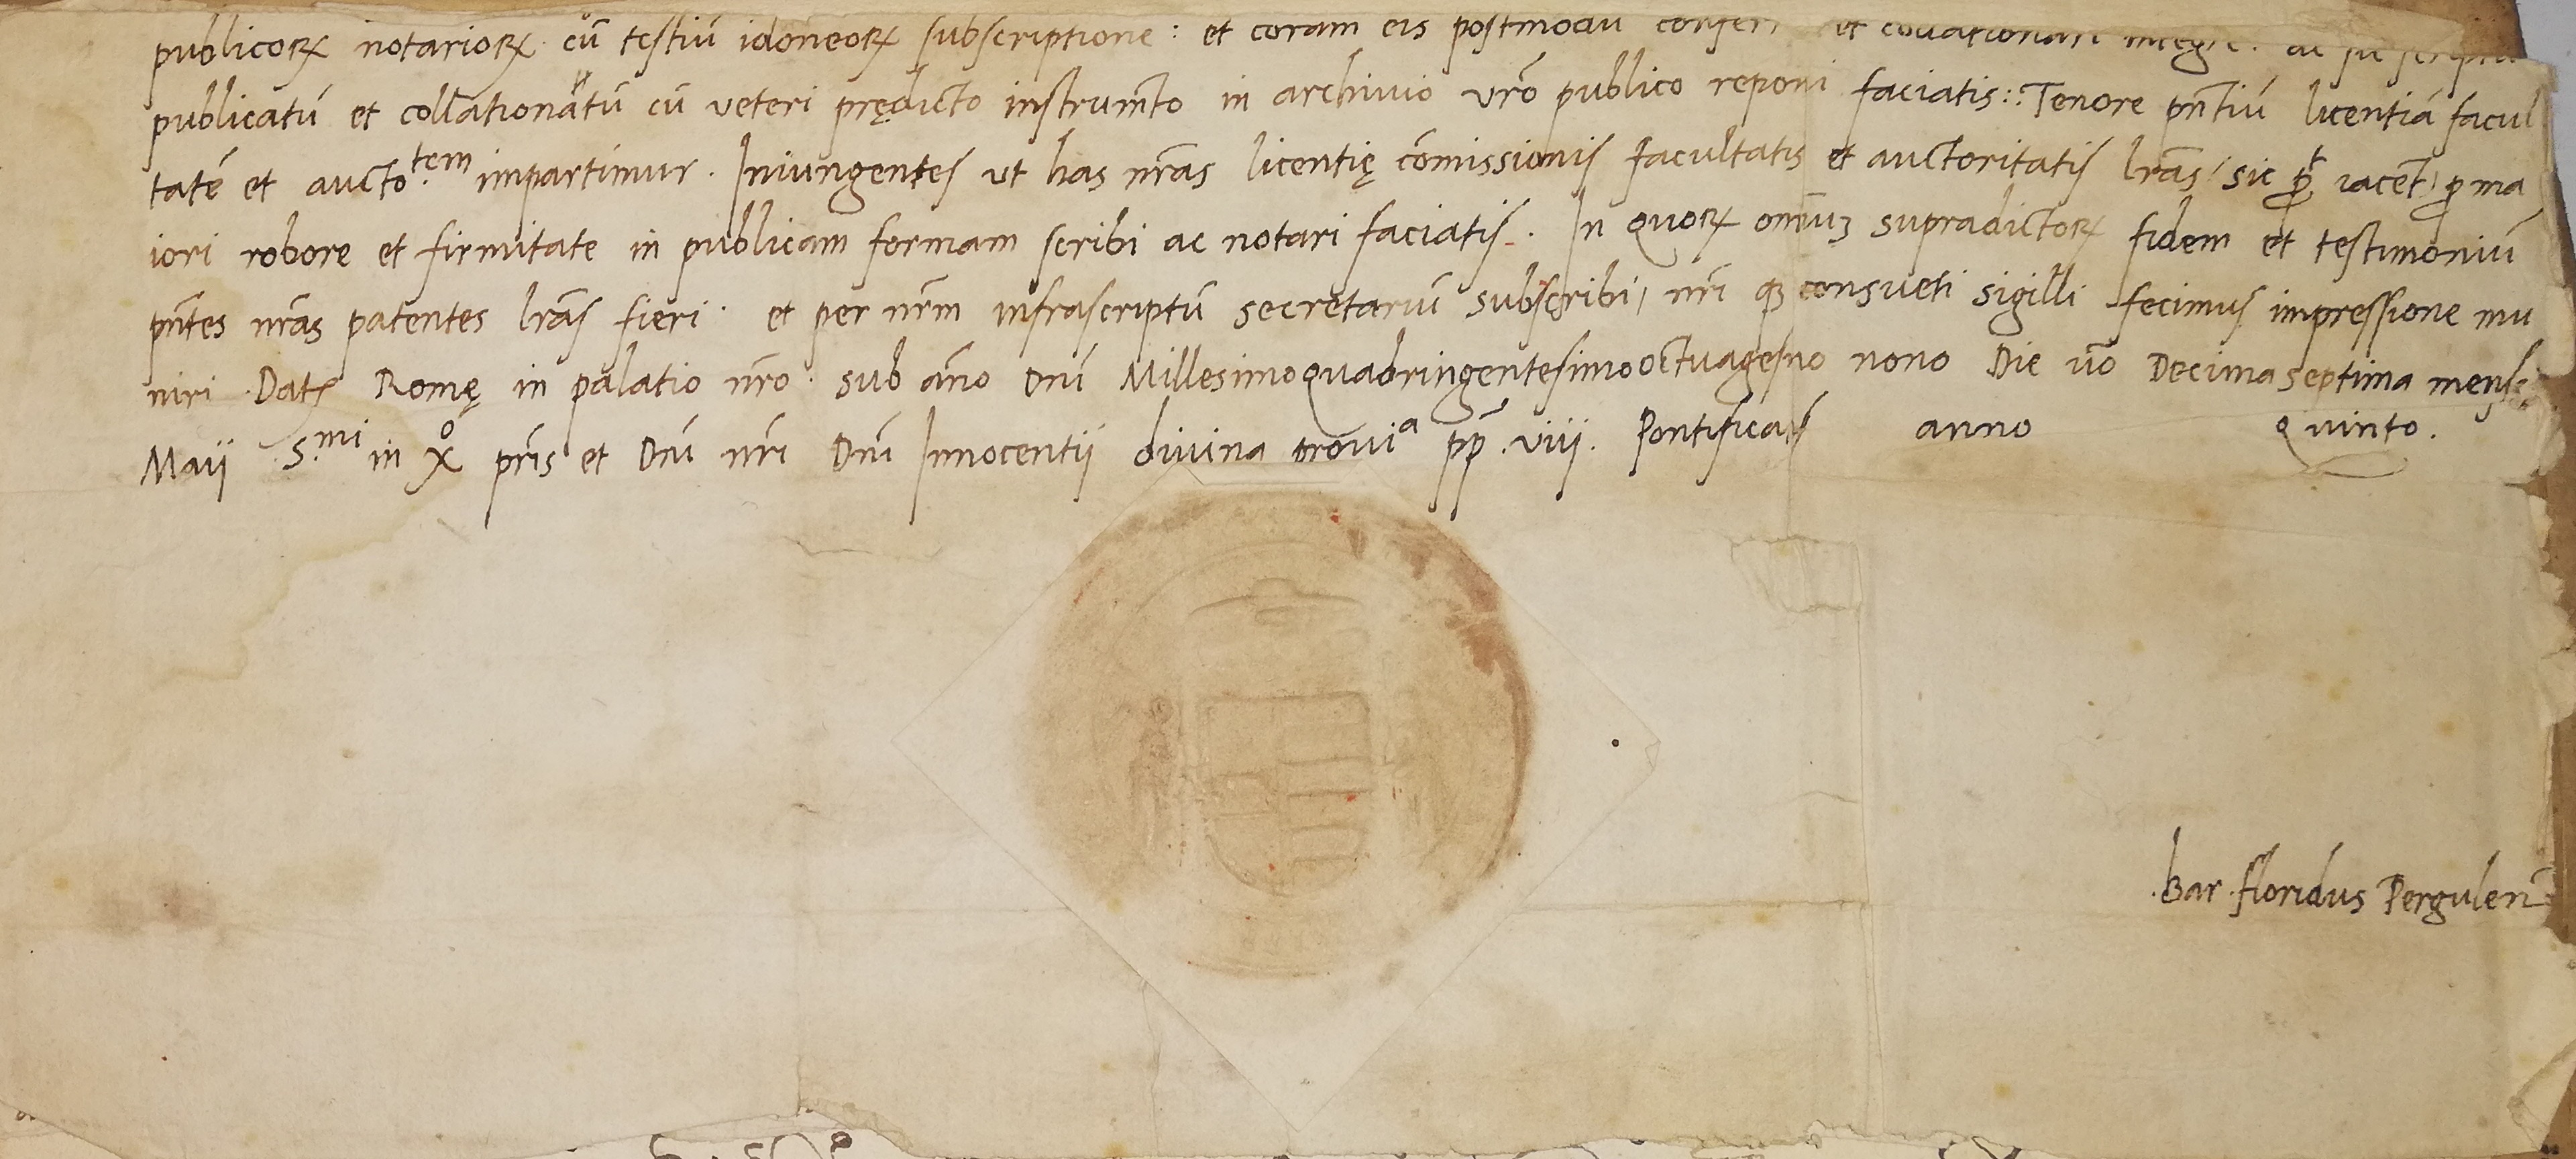 publicoꝝ notarioꝝ cū testiū idoneoꝝ subscriptione : et coram eis postmodū et collationari integre . ac sic
publicatū et collationatū cū veteri prędicto instrumto in archiuio vr̄o publico reponi faciatis :. Tenore pn̄tiū licentiā facul
tatē et aucto.tem impartimur . Iniungentes ut has nr̄as licentię cōmissionis facultatis et auctoritatis lr̄as / sic ꝓt iacēt / ꝓ ma
iori robore et firmitate in publicam formam scribi ac notari faciatis . In quoꝝ omīuꝫ supradictoꝝ fidem et testimoniū
pn̄tes nr̄as patentes lr̄as fieri . et per nr̄m infrascriptū secretariū subscribi / nr̄i qꝫ consueti sigilli fecimus impressione mu
niri . Datꝭ Romę in palatio nr̄o . sub an̄o Dn̄i Millesimoquadringentesimooctuagesīo nono Die vō Decimaseptima mensis
Maii S.mi in Xº pr̄is et Dn̄i nr̄i Dn̄i Innocentii diuina ꝓuia pp̄ . viij . Pontificatꝭ anno quinto .
. Bar . floridus Pergulen̄